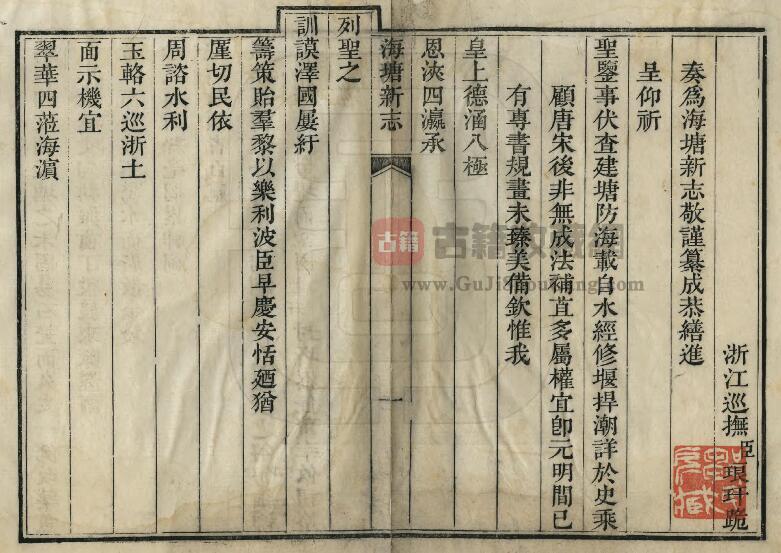 浙江巡撫臣琅玕跪
奏為海塘新志敬謹纂成恭繕進
呈仰祈
聖鑒事伏查建塘防海載自水經修堰捍潮詳於史乘
顧唐宋後非無成法補苴多屬權宜卽元明間已
有專書規畫未臻美備欽惟我
皇上德涵八極
恩浹四瀛承
海塘新志
一
列聖之
訓謨澤國屢紆
籌策貽羣黎以樂利波臣早慶安恬廼猶
厪切民依
周諮水利
玉輅六巡浙土
面示機宜
翠華四蒞海濵
古籍 古籍收藏網
www.GuJiShouCang.com